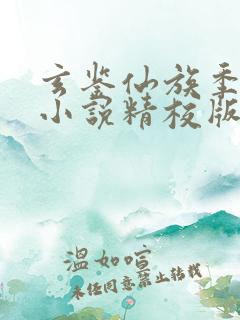 玄鉴仙族季
小说精校版
温如喧
未经同意禁止转载